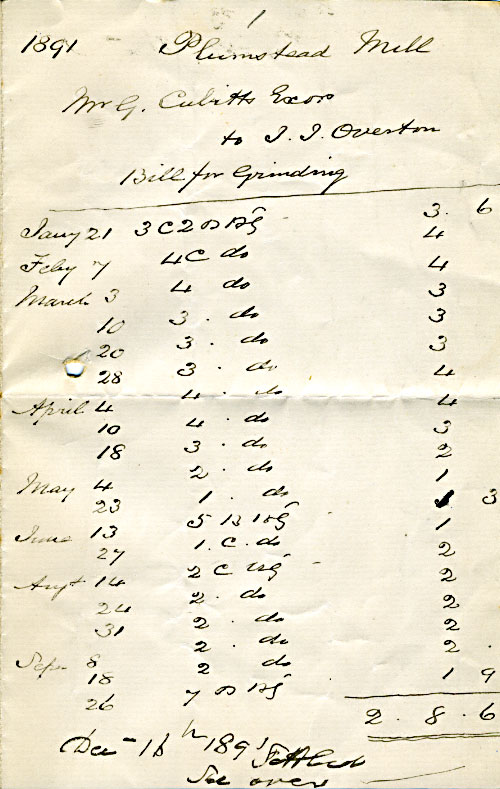 1
1891 Plumstead Mill
Mr G. Cubitts Exors
to J. J. Overton
Bill for Grinding
Jany 21 3 C 2 B Bg 3. 6
Feby 7 4 C do 4
March 3 4 do 4
10 3 . do 3
20 3 . do 3
28 3 . do 3
April 4 4 . do 4
10 4 . do 4
18 3 . do 3
May 4 2 . do 2
23 1 . do 1
June 13 5 B Bg 1 3
27 1 . C . do 1
Augt 14 2 C Bg 2
24 2 . do 2
31 2 . do 2
Sepr 8 2 . do 2
18 2 do 2 .
26 7 B Bg 1 9
2 . 8 . 6
Dec 16th 1891 Settled
See over